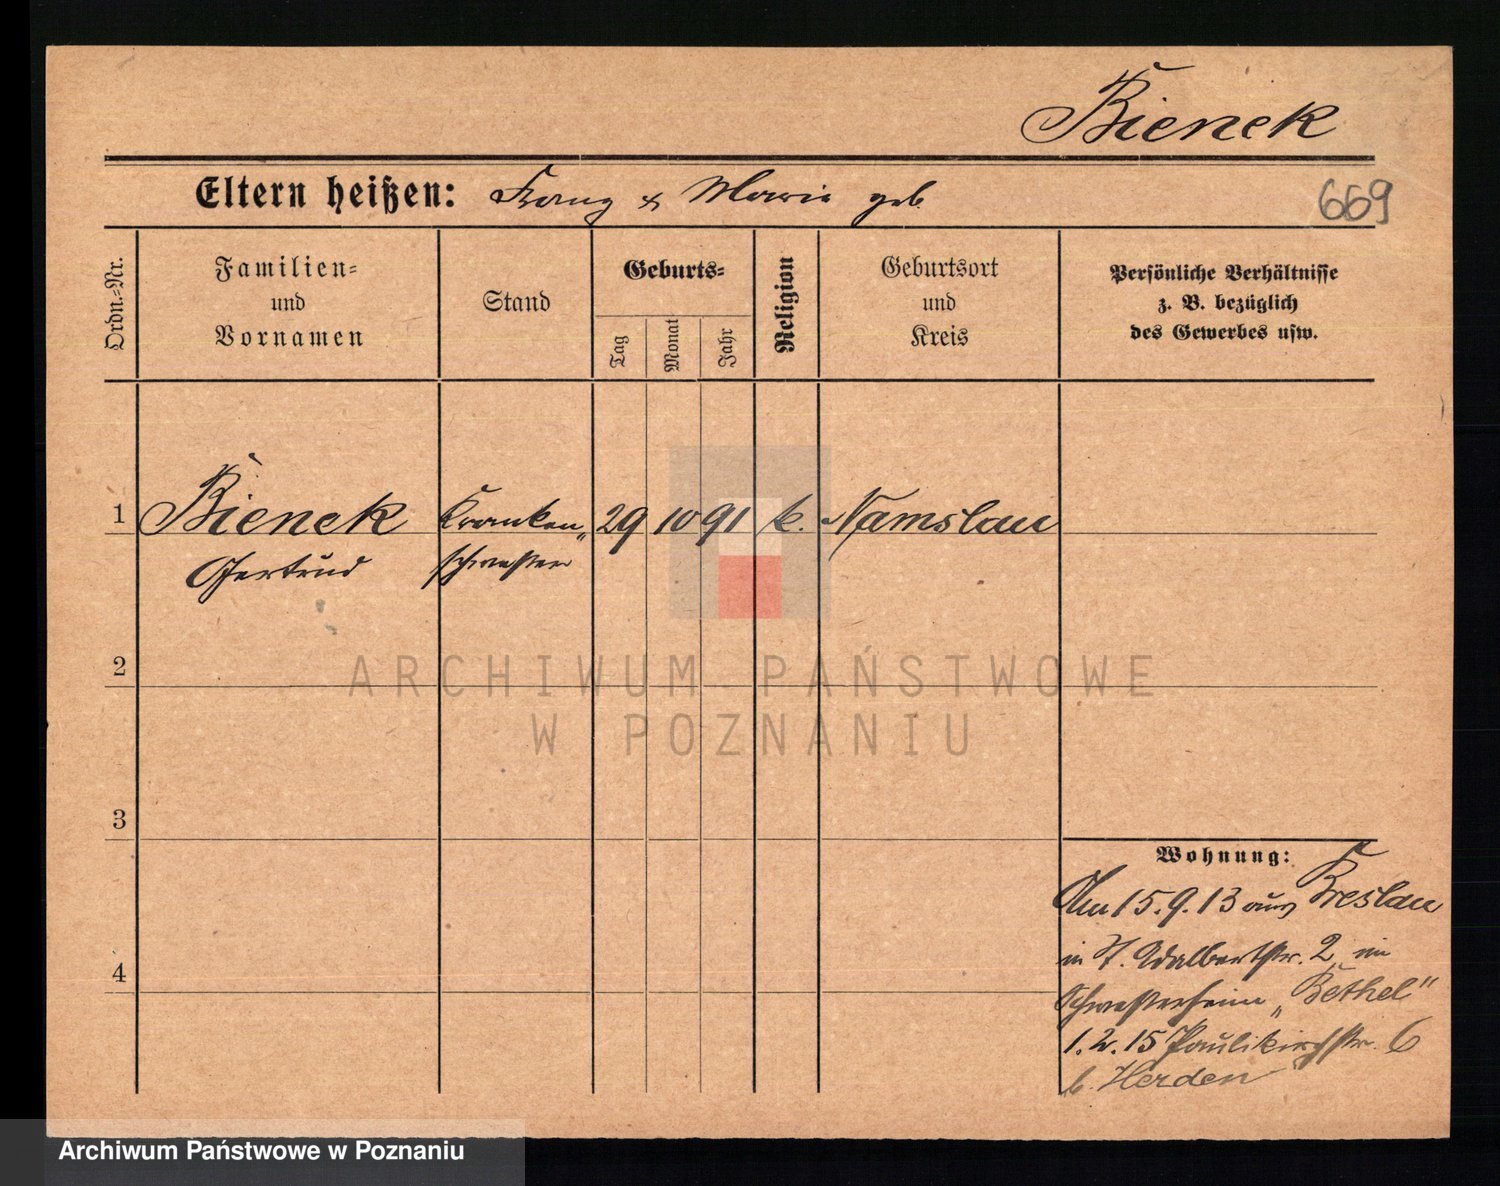 Bienek
Eltern heißen: Franz & Maria geb.
669
Ordn.-Nr.
Familien-
und
Vornamen
Stand
Geburts-
Tag
Monat
Jahr
Religion
Geburtsort
und
Kreis
Persönliche Verhältnisse
z. B. bezüglich
des Gewerbes usw.
1 Bienek Kranken„ 29 10 91 k. Namslau
Gertrud schwester
2
ARCHIWUM PAŃSTWOWE
W POZNANIU
3
Wohnung:
Am 15.9.13 aus Breslau
in St. Adalbertstr. 2, im
4
Schwesterheim „Bethel“
1.2.15 Paulikirchstr. 6
b. Herden
Archiwum Państwowe w Poznaniu